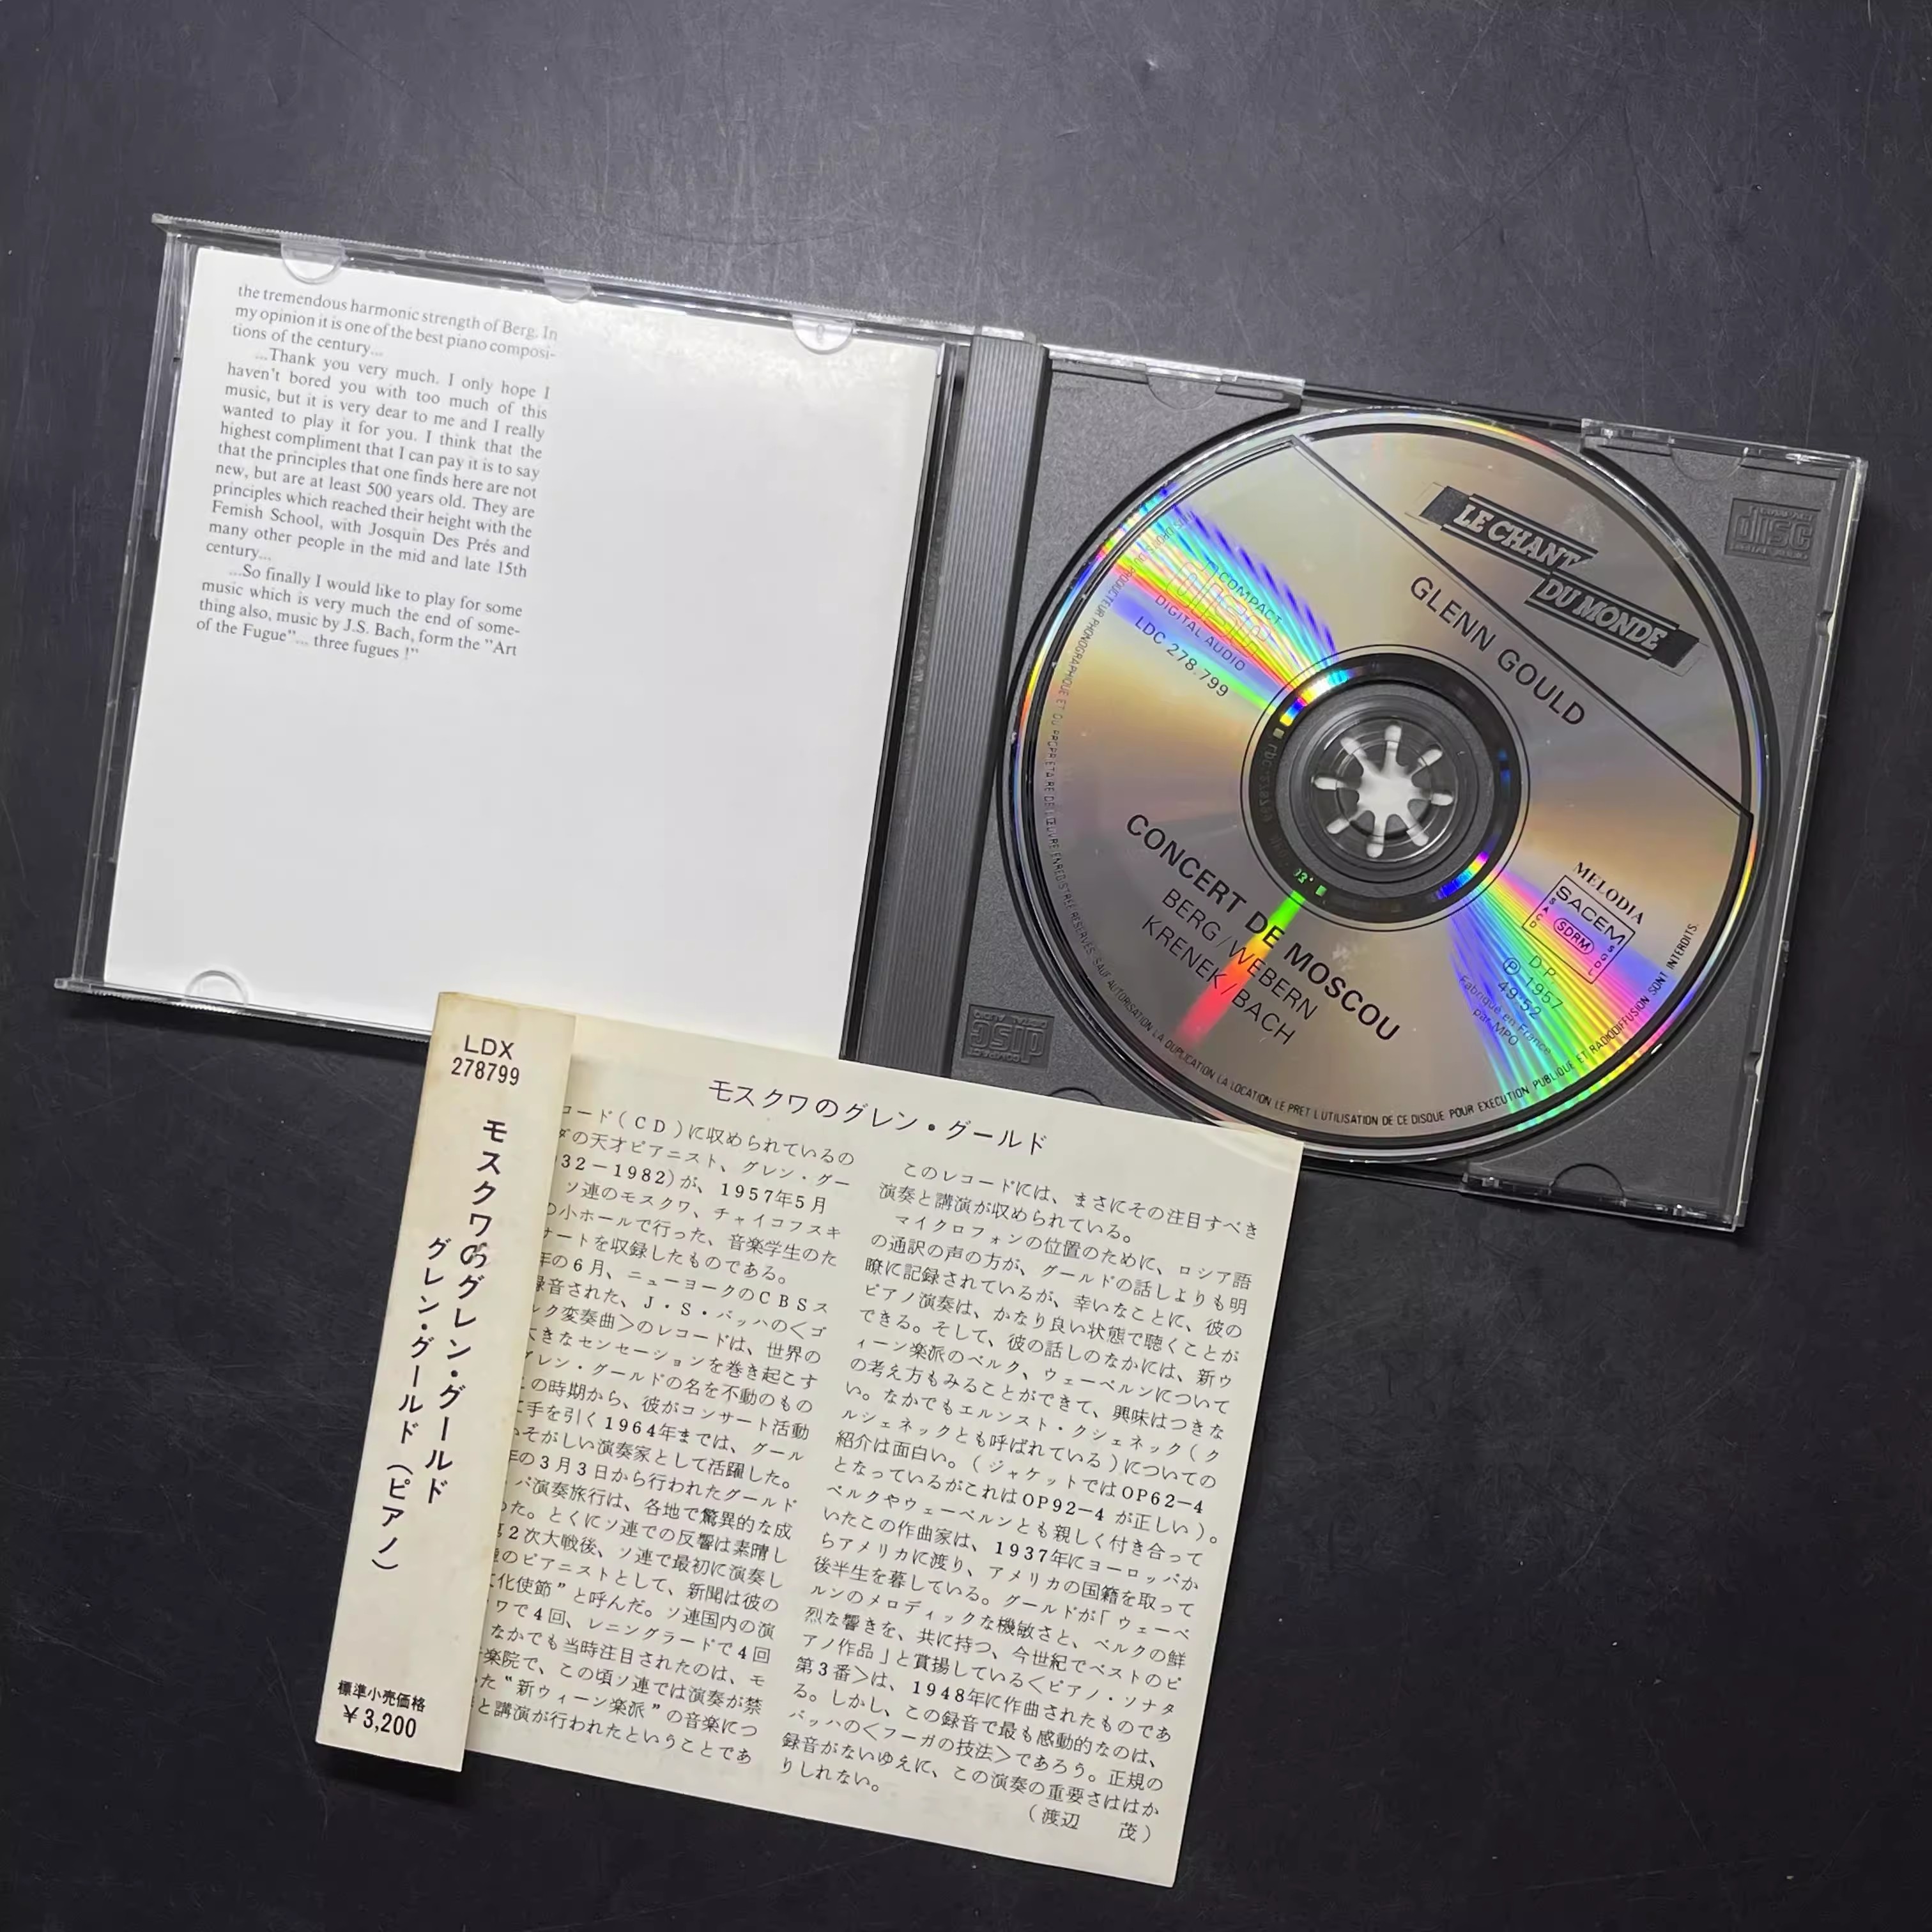 the tremendous harmonic strength of Berg. In
my opinion it is one of the best piano composi-
tions of the century...
...Thank you very much. I only hope I
haven't bored you with too much of this
music, but it is very dear to me and I really
wanted to play it for you. I think that the
highest compliment that I can pay it is to say
that the principles that one finds here are not
new, but are at least 500 years old. They are
principles which reached their height with the
Femish School, with Josquin Des Prés and
many other people in the mid and late 15th
century...
...So finally I would like to play for some
music which is very much the end of some-
thing also, music by J.S. Bach, form the "Art
of the Fugue"... three fugues !"
LE CHANT
DU MONDE
GLENN GOULD
COMPACT
disc
DIGITAL AUDIO
LDC 278.799
CONCERT DE MOSCOU
BERG/WEBERN
KRENEK/BACH
MELODIA
SACEM
SDRM
D.P.
Ⓟ 1957
49'52
Fabriqué en France
par MPO
DU PRODUCTEUR PHONOGRAPHIQUE ET DU PROPRIETAIRE DE L'ŒUVRE ENREGISTREE RESERVES. SAUF AUTORISATION LA DUPLICATION LA LOCATION LE PRET L'UTILISATION DE CE DISQUE POUR EXECUTION PUBLIQUE ET RADIODIFFUSION SONT INTERDITS.
disc
disc
LDX
278799
モスクワのグレン・グールド
グレン・グールド（ピアノ）
標準小売価格
￥3,200
モスクワのグレン・グールド
コード(ＣＤ)に収められているの
の天才ピアニスト、グレン・グー
32－1982)が、1957年5月
ソ連のモスクワ、チャイコフスキ
の小ホールで行った、音楽学生のた
サートを収録したものである。
年の6月、ニューヨークのＣＢＳス
録音された、Ｊ・Ｓ・バッハの＜ゴ
ルク変奏曲＞のレコードは、世界の
大きなセンセーションを巻き起こす
グレン・グールドの名を不動のもの
の時期から、彼がコンサート活動
に手を引く1964年までは、グール
いそがしい演奏家として活躍した。
年の3月3日から行われたグールド
パ演奏旅行は、各地で驚異的な成
った。とくにソ連での反響は素晴し
第2次大戦後、ソ連で最初に演奏し
のピアニストとして、新聞は彼の
文化使節”と呼んだ。ソ連国内の演
ワで4回、レニングラードで4回
なかでも当時注目されたのは、モ
音楽院で、この頃ソ連では演奏が禁
た“新ウィーン楽派”の音楽につ
と講演が行われたということであ
このレコードには、まさにその注目すべき
演奏と講演が収められている。
マイクロフォンの位置のために、ロシア語
の通訳の声の方が、グールドの話しよりも明
瞭に記録されているが、幸いなことに、彼の
ピアノ演奏は、かなり良い状態で聴くことが
できる。そして、彼の話しのなかには、新ウ
ィーン楽派のベルク、ウェーベルンについて
の考え方もみることができて、興味はつきな
い。なかでもエルンスト・クシェネック(ク
ルシェネックとも呼ばれている)についての
紹介は面白い。(ジャケットではOP62－4
となっているがこれはOP92－4 が正しい)。
ベルクやウェーベルンとも親しく付き合って
いたこの作曲家は、1937年にヨーロッパか
らアメリカに渡り、アメリカの国籍を取って
後半生を暮している。グールドが「ウェーベ
ルンのメロディックな機敏さと、ベルクの鮮
烈な響きを、共に持つ、今世紀でベストのピ
アノ作品」と賞揚している＜ピアノ・ソナタ
第3番＞は、1948年に作曲されたものであ
る。しかし、この録音で最も感動的なのは、
バッハの＜フーガの技法＞であろう。正規の
録音がないゆえに、この演奏の重要さははか
りしれない。
(渡辺　茂)